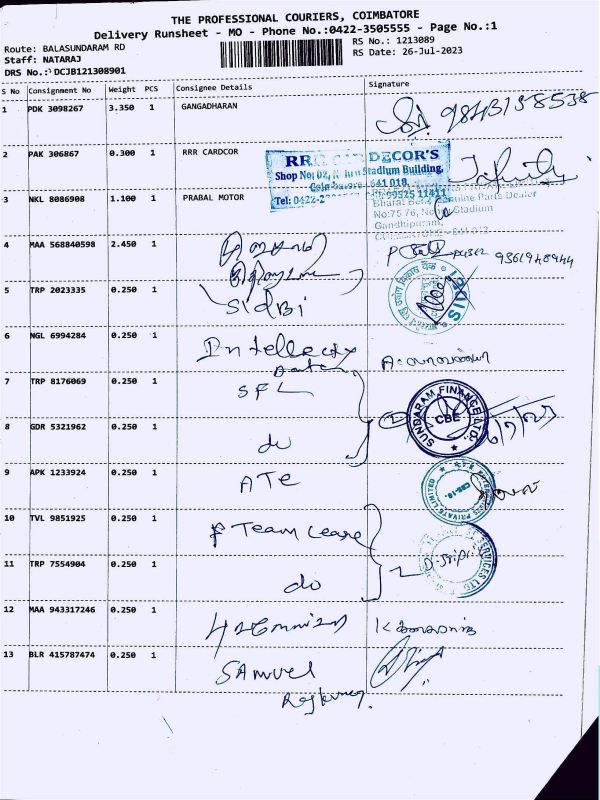 THE PROFESSIONAL COURIERS, COIMBATORE
Delivery Runsheet - MO - Phone No.:0422-3505555 - Page No.:1
Route: BALASUNDARAM RD
RS No.: 1213089
Staff: NATARAJ
RS Date: 26-Jul-2023
DRS No.: DCJB121308901
S No Consignment No Weight PCS Consignee Details Signature
1 PDK 3098267 3.350 1 GANGADHARAN
2 PAK 306867 0.300 1 RRR CARDCOR
DECOR'S
Stadium Building,
641 018
Tel: 0422-2
99525 11411
3 NKL 8086908 1.100 1 PRABAL MOTOR
Genuine Parts Dealer
No:75 76, Stadium
Gandhipuram,
4 MAA 568840598 2.450 1
9361948944
5 TRP 2023335 0.250 1 SIDBI
SIDBI
6 NGL 6994284 0.250 1 Intellect
Data
7 TRP 8176069 0.250 1 SFL
SUNDARAM FINANCE LTD.
CBE
8 GDR 5321962 0.250 1 do
9 APK 1233924 0.250 1 ATE
PRIVATE LIMITED
10 TVL 9851925 0.250 1 Team Lease
SERVICES LTD
11 TRP 7554904 0.250 1 do
12 MAA 943317246 0.250 1
13 BLR 415787474 0.250 1 SAMUEL